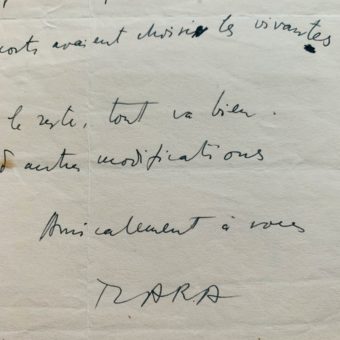 avaient choisi les vivantes
le reste, tout va bien.
d'autres modifications
Amicalement à vous
TZARA